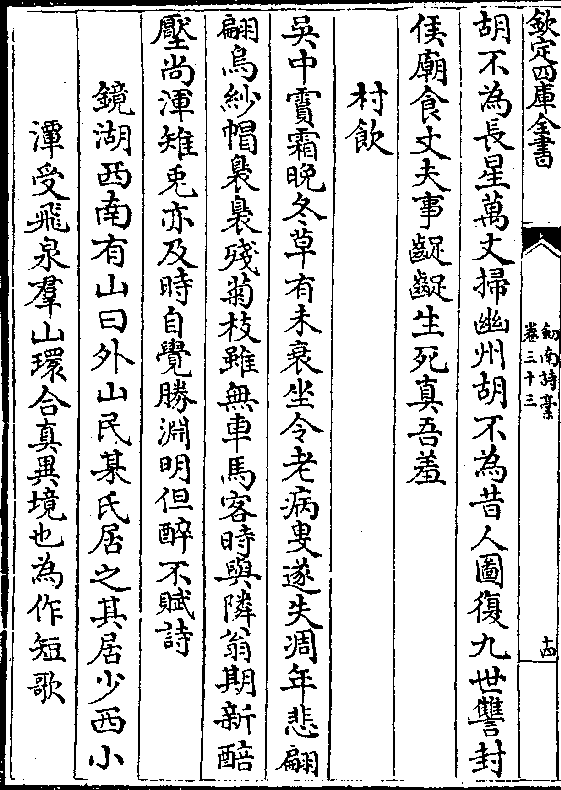 欽定四庫全書
劒南詩稾
卷三十三
十四
胡不為長星萬丈掃幽州胡不為昔人圖復九世讐封
侯廟食丈夫事齪齪生死真吾羞
村飲
吳中霣霜晩冬草有未衰坐令老病叟遂失凋年悲翩
翩烏紗帽裊裊殘菊枝雖無車馬客時與隣翁期新醅
壓尚渾雉兎亦及時自覺勝淵明但醉不賦詩
鏡湖西南有山曰外山民某氏居之其居少西小
潭受飛泉羣山環合真異境也為作短歌